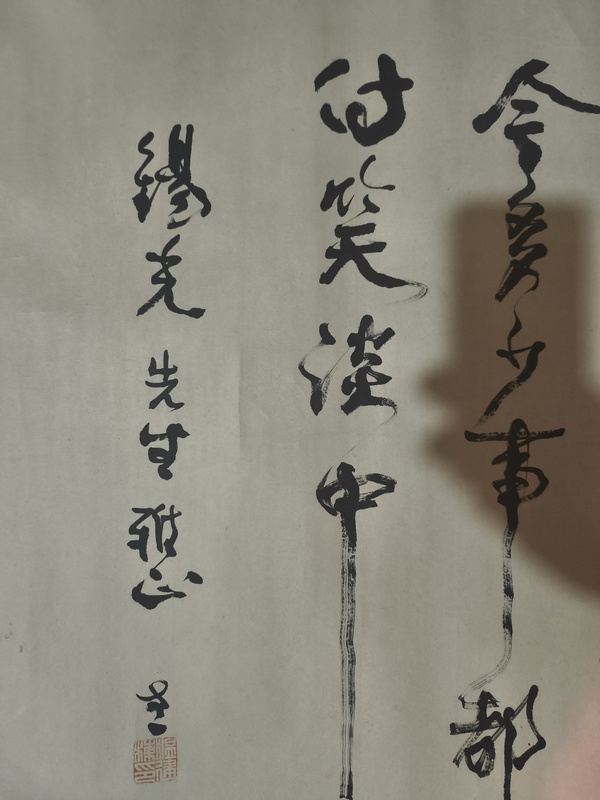 今多少事都
付笑談中
錫光先生雅正